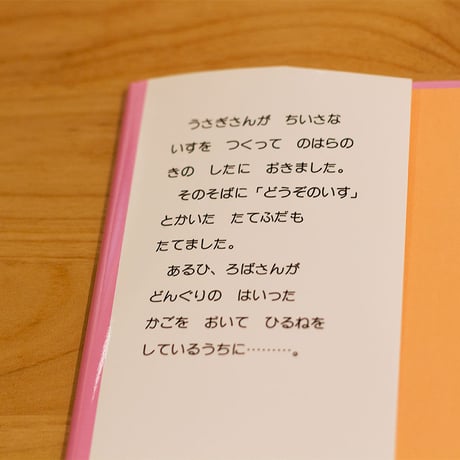 うさぎさんが　ちいさな
いすを　つくって　のはらの
きの　したに　おきました。
そのそばに「どうぞのいす」
とかいた　たてふだも
たてました。
あるひ、ろばさんが
どんぐりの　はいった
かごを　おいて　ひるねを
しているうちに………。